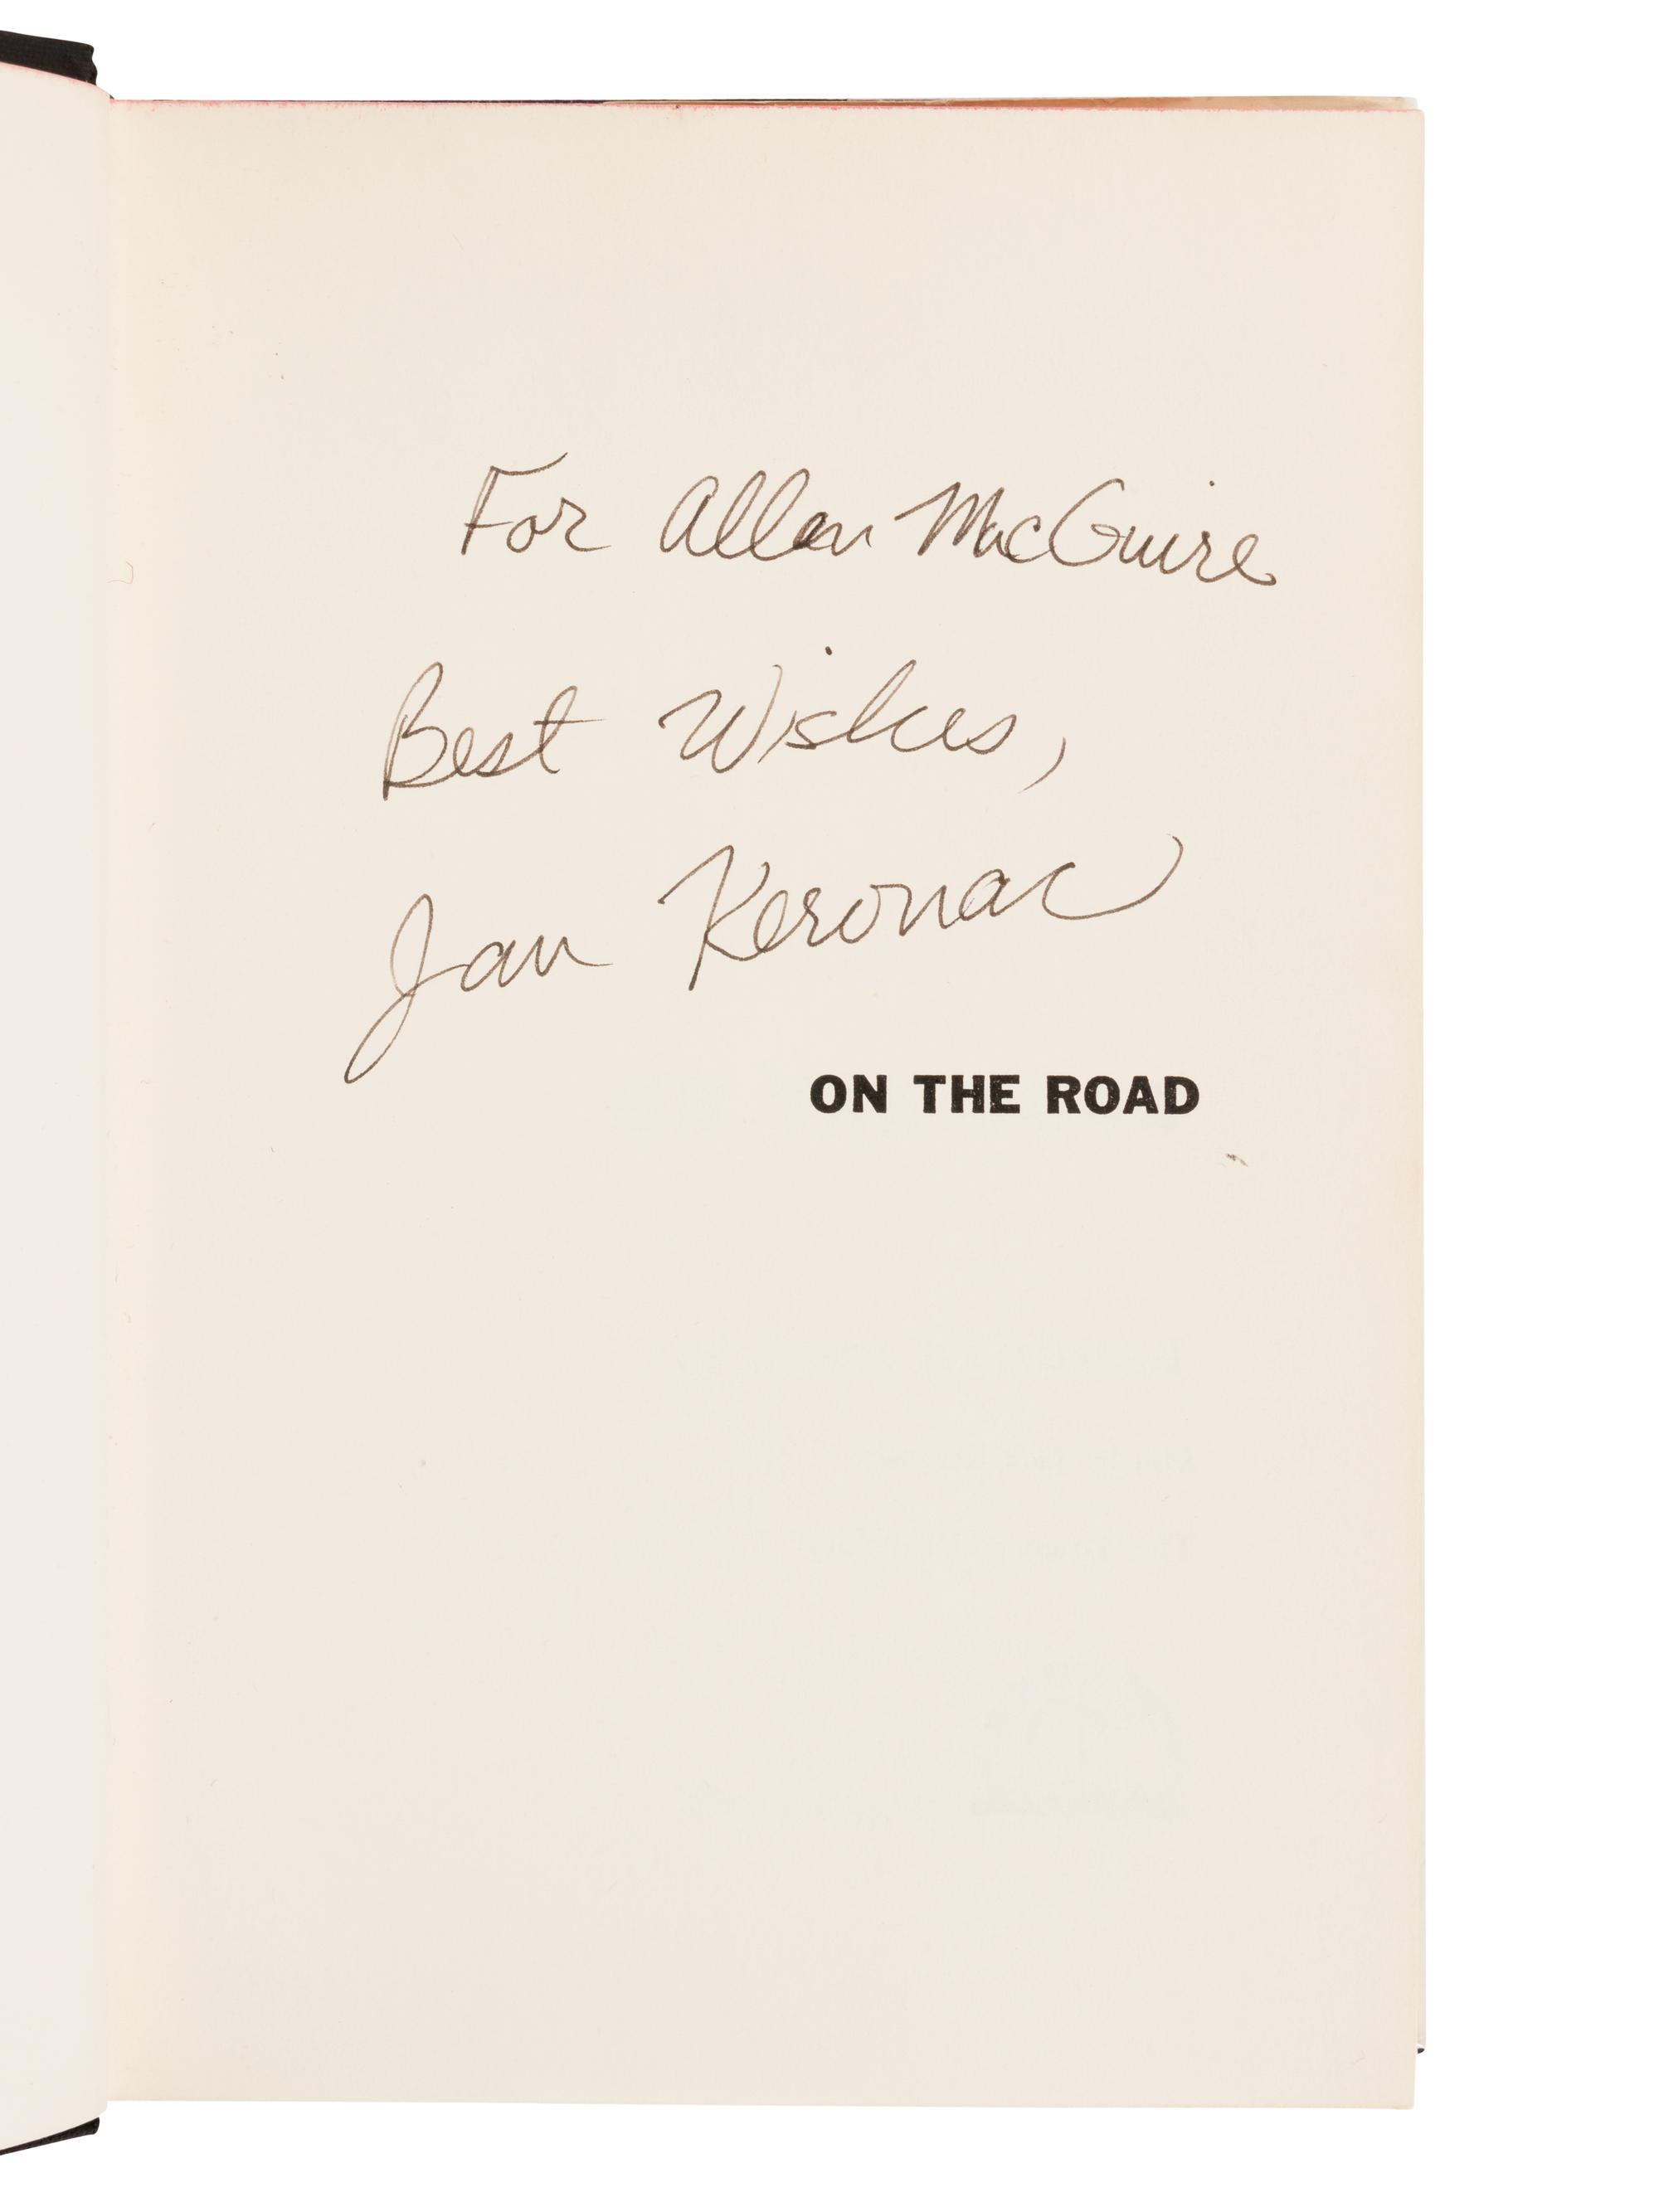 For Allen MacGuire
Best Wishes,
Jan Kerouac
ON THE ROAD